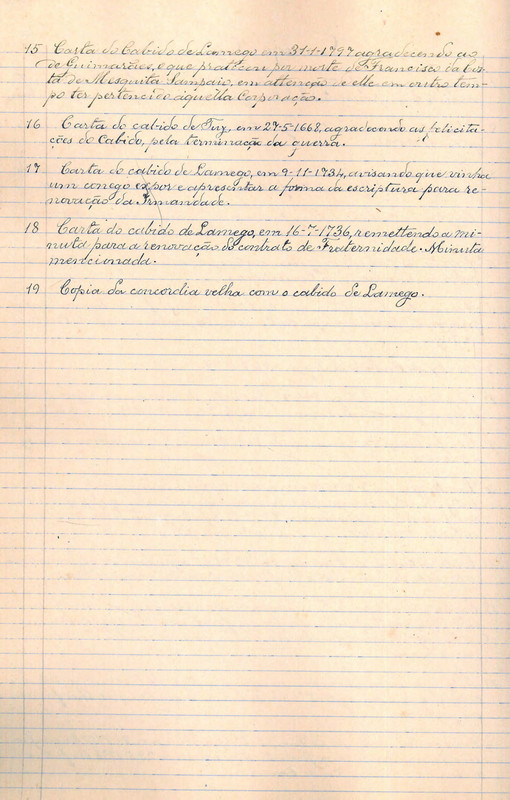 15 Carta do Cabido de Lamego em 31-1-1797 agradecendo ao
de Guimarães, o que praticou por morte de Francisco da Cos-
ta de Mesquita Sampaio, em attenção a elle em outro tem-
po ter pertencido áquella Corporação.
16 Carta do cabido de Tuy, em 27-5-1668, agradecendo as felicita-
ções do Cabido, pela terminação da guerra.
17 Carta do cabido de Lamego, em 9-11-1734, avisando que vinha
um conego expor e apresentar a forma da escriptura para re-
novação da Irmandade.
18 Carta do cabido de Lamego, em 16-7-1736, remettendo a mi-
nuta para a renovação do contrato de Fraternidade. Minuta
mencionada.
19 Copia da concordia velha com o cabido de Lamego.